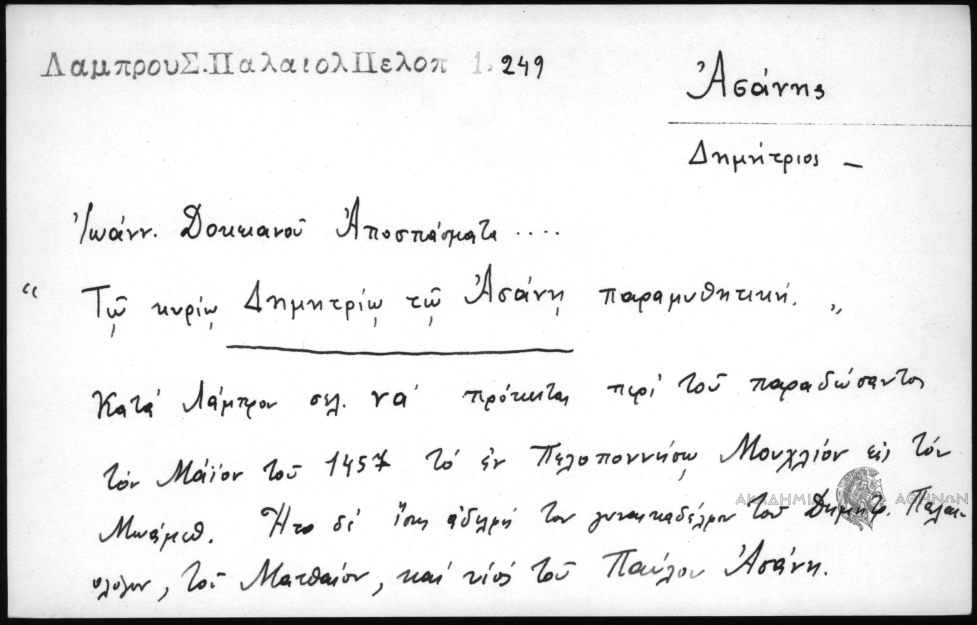 Λαμπρου Σ. Παλαιολ Πελοπ 1. 249
Ἀσάνης
Δημήτριος —
Ἰωάνν. Δοκιανοῦ Ἀποσπάσματα ....
“ Τῷ κυρίῳ Δημητρίῳ τῷ Ἀσάνῃ παραμυθητική. „
Κατὰ Λάμπρον σελ. να' πρόκειται περὶ τοῦ παραδώσαντος
τὸν Μάϊον τοῦ 1457 τὸ ἐν Πελοποννήσῳ Μουχλίον εἰς τὸν
Μωάμεθ. Ἦτο δὲ ἴσως τοῦ γυναικαδέλφου τοῦ Δημητρ. Παλαι-
ολόγου, τοῦ Ματθαίου, καὶ υἱὸς τοῦ Παύλου Ἀσάνη.
ΑΚΑΔΗΜΙΑ ΑΘΗΝΩΝ